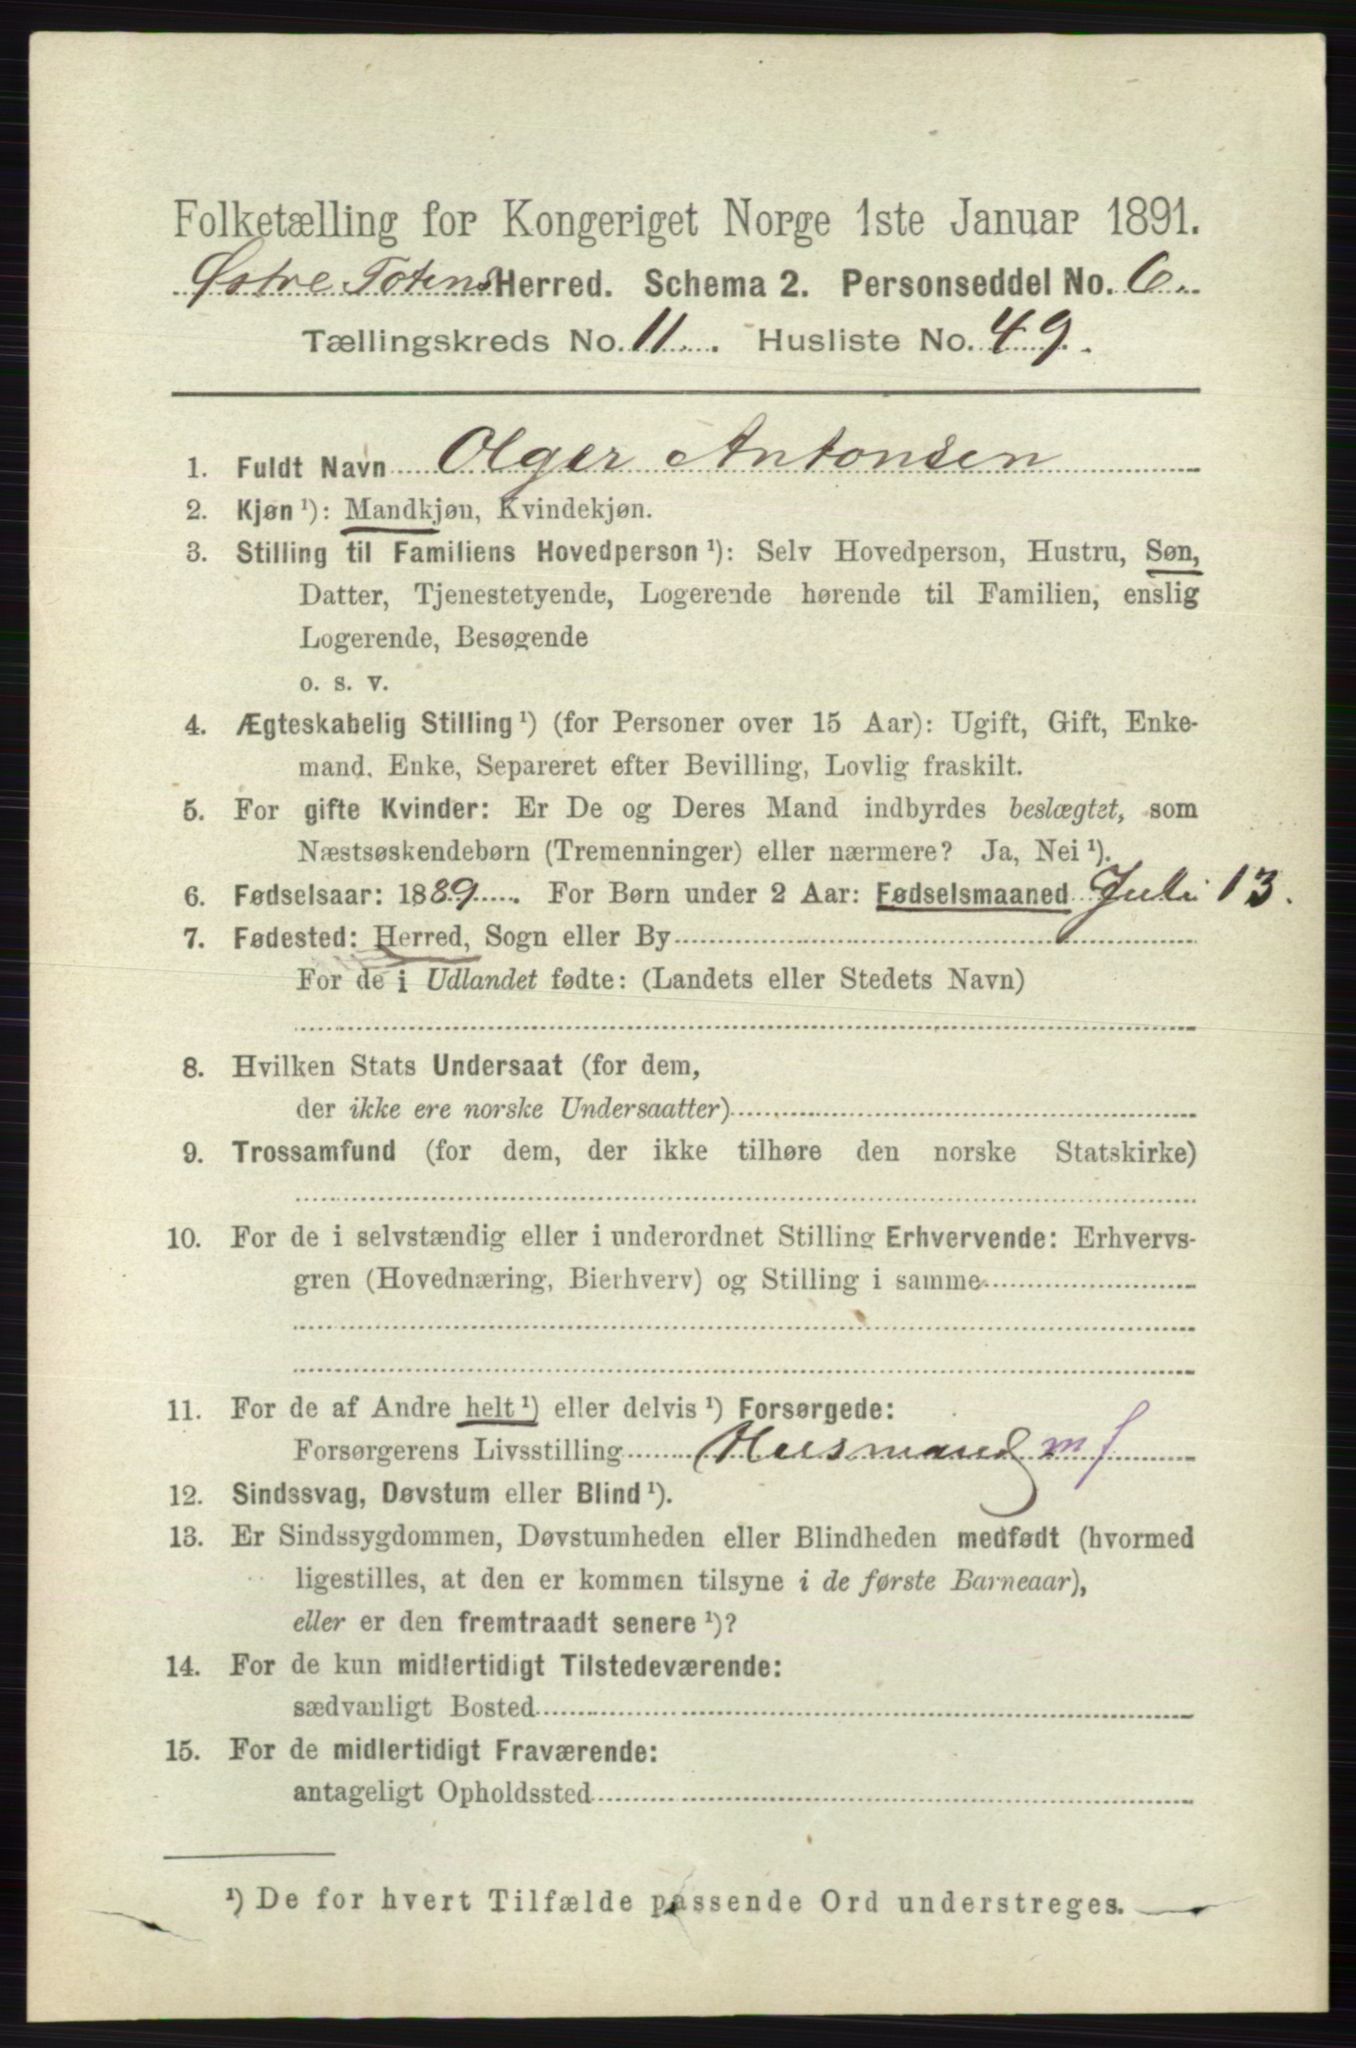 Folketælling for Kongeriget Norge 1ste Januar 1891.
Østre Totens Herred. Schema 2. Personseddel No. 6.
Tællingskreds No. 11. Husliste No. 49.
1. Fuldt Navn Olger Antonsen
2. Kjøn ¹): Mandkjøn, Kvindekjøn.
3. Stilling til Familiens Hovedperson ¹): Selv Hovedperson, Hustru, Søn,
Datter, Tjenestetyende, Logerende hørende til Familien, enslig
Logerende, Besøgende
o. s. v.
4. Ægteskabelig Stilling ¹) (for Personer over 15 Aar): Ugift, Gift, Enke-
mand, Enke, Separeret efter Bevilling, Lovlig fraskilt.
5. For gifte Kvinder: Er De og Deres Mand indbyrdes beslægtet, som
Næstsøskendebørn (Tremenninger) eller nærmere? Ja, Nei ¹).
6. Fødselsaar: 1889. For Børn under 2 Aar: Fødselsmaaned Juli 13.
7. Fødested: Herred, Sogn eller By
For de i Udlandet fødte: (Landets eller Stedets Navn)
8. Hvilken Stats Undersaat (for dem,
der ikke ere norske Undersaatter)
9. Trossamfund (for dem, der ikke tilhøre den norske Statskirke)
10. For de i selvstændig eller i underordnet Stilling Erhvervende: Erhvervs-
gren (Hovednæring, Bierhverv) og Stilling i samme
11. For de af Andre helt ¹) eller delvis ¹) Forsørgede:
Forsørgerens Livsstilling Husmand m f
12. Sindssvag, Døvstum eller Blind ¹).
13. Er Sindssygdommen, Døvstumheden eller Blindheden medfødt (hvormed
ligestilles, at den er kommen tilsyne i de første Barneaar),
eller er den fremtraadt senere ¹)?
14. For de kun midlertidigt Tilstedeværende:
sædvanligt Bosted
15. For de midlertidigt Fraværende:
antageligt Opholdssted
¹) De for hvert Tilfælde passende Ord understreges.